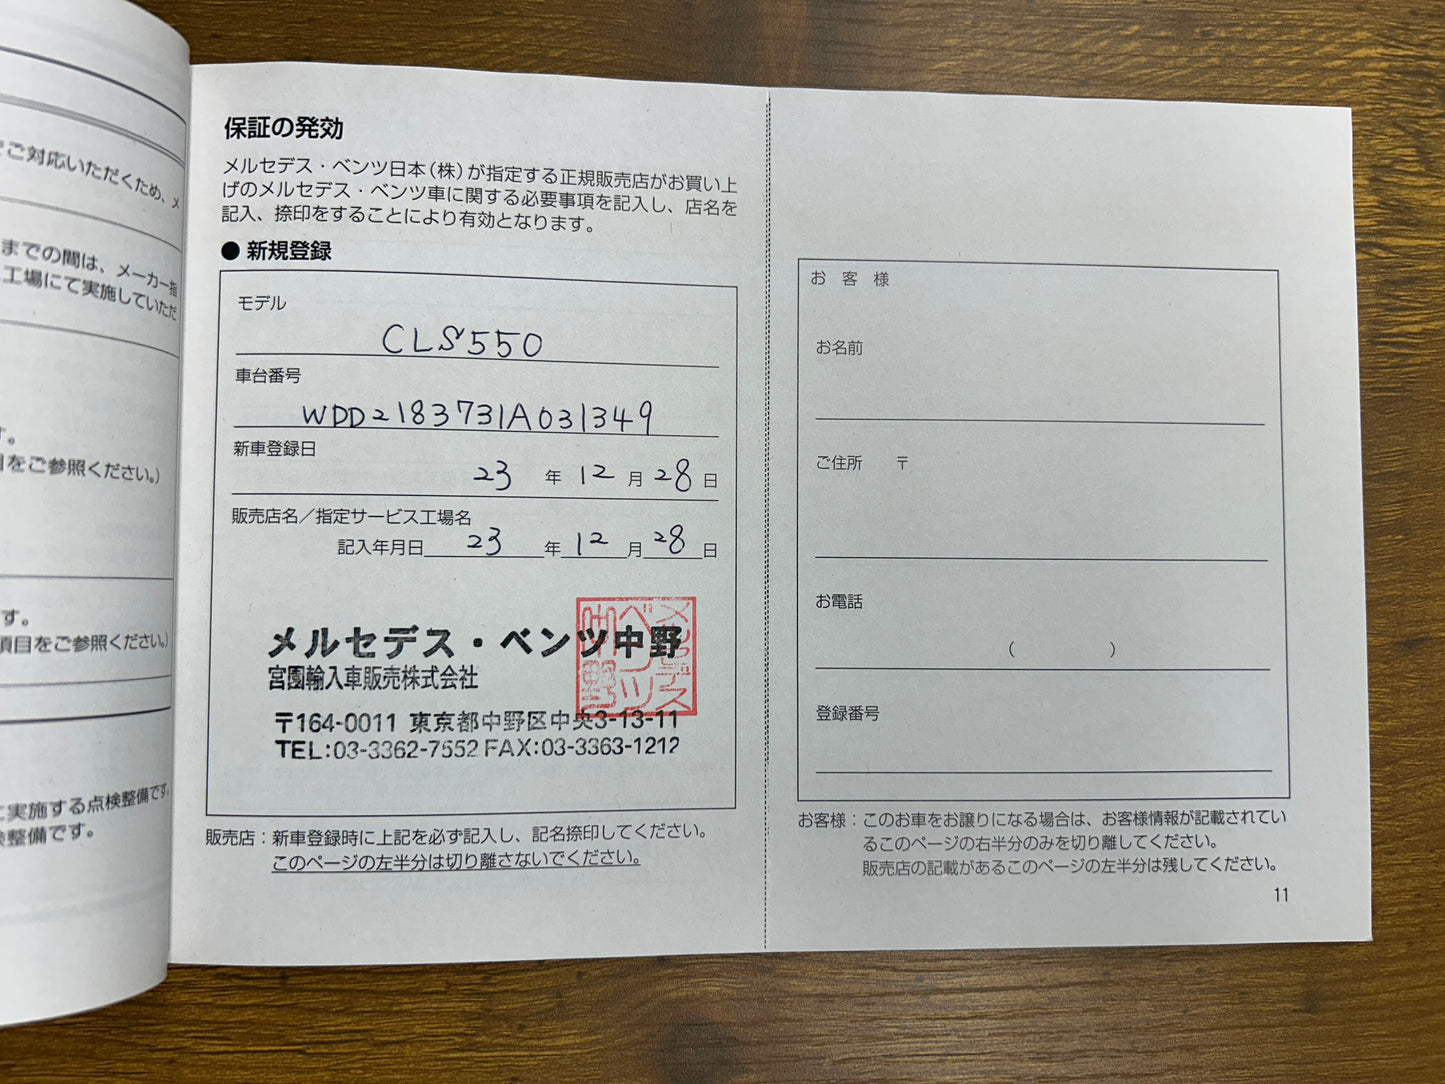 でご対応いただくため、メ
までの間は、メーカー指
工場にて実施していただ
す。
目をご参照ください。)
す。
項目をご参照ください。)
に実施する点検整備です。
検整備です。
保証の発効
メルセデス・ベンツ日本(株)が指定する正規販売店がお買い上
げのメルセデス・ベンツ車に関する必要事項を記入し、店名を
記入、捺印をすることにより有効となります。
● 新規登録
モデル
CLS550
車台番号
WDD2183731A031349
新車登録日
23 年 12 月 28 日
販売店名／指定サービス工場名
記入年月日 23 年 12 月 28 日
メルセデス・ベンツ中野
宮園輸入車販売株式会社
〒164-0011 東京都中野区中央3-13-11
TEL:03-3362-7552 FAX:03-3363-1212
メルセデス
ベンツ
中野
販売店：新車登録時に上記を必ず記入し、記名捺印してください。
このページの左半分は切り離さないでください。
お客様
お名前
ご住所 〒
お電話
( )
登録番号
お客様：このお車をお譲りになる場合は、お客様情報が記載されてい
るこのページの右半分のみを切り離してください。
販売店の記載があるこのページの左半分は残してください。
11